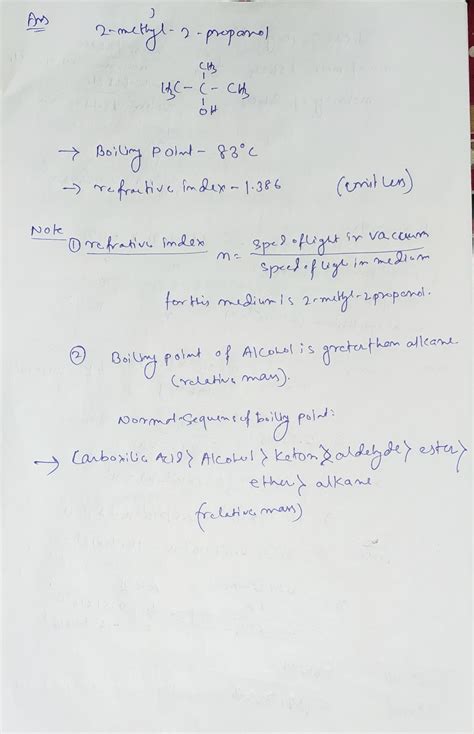 Ans
2-methyl-2-propanol
CH3
H3C - C - CH3
OH
→ Boiling Point - 83°C
→ refractive index - 1.386 (unit less)
Note
① refrative index n = speed of light in vacuum
speed of ligh in medium
for this medium is 2-methyl-2propanol.
② Boiling point of Alcohol is greter than alkane
(relative mass).
Normal Sequence of boiling point:
→ Carboxilic Acid > Alcohol > Keton > aldehyde > ester >
ether > alkane
(relative mass)